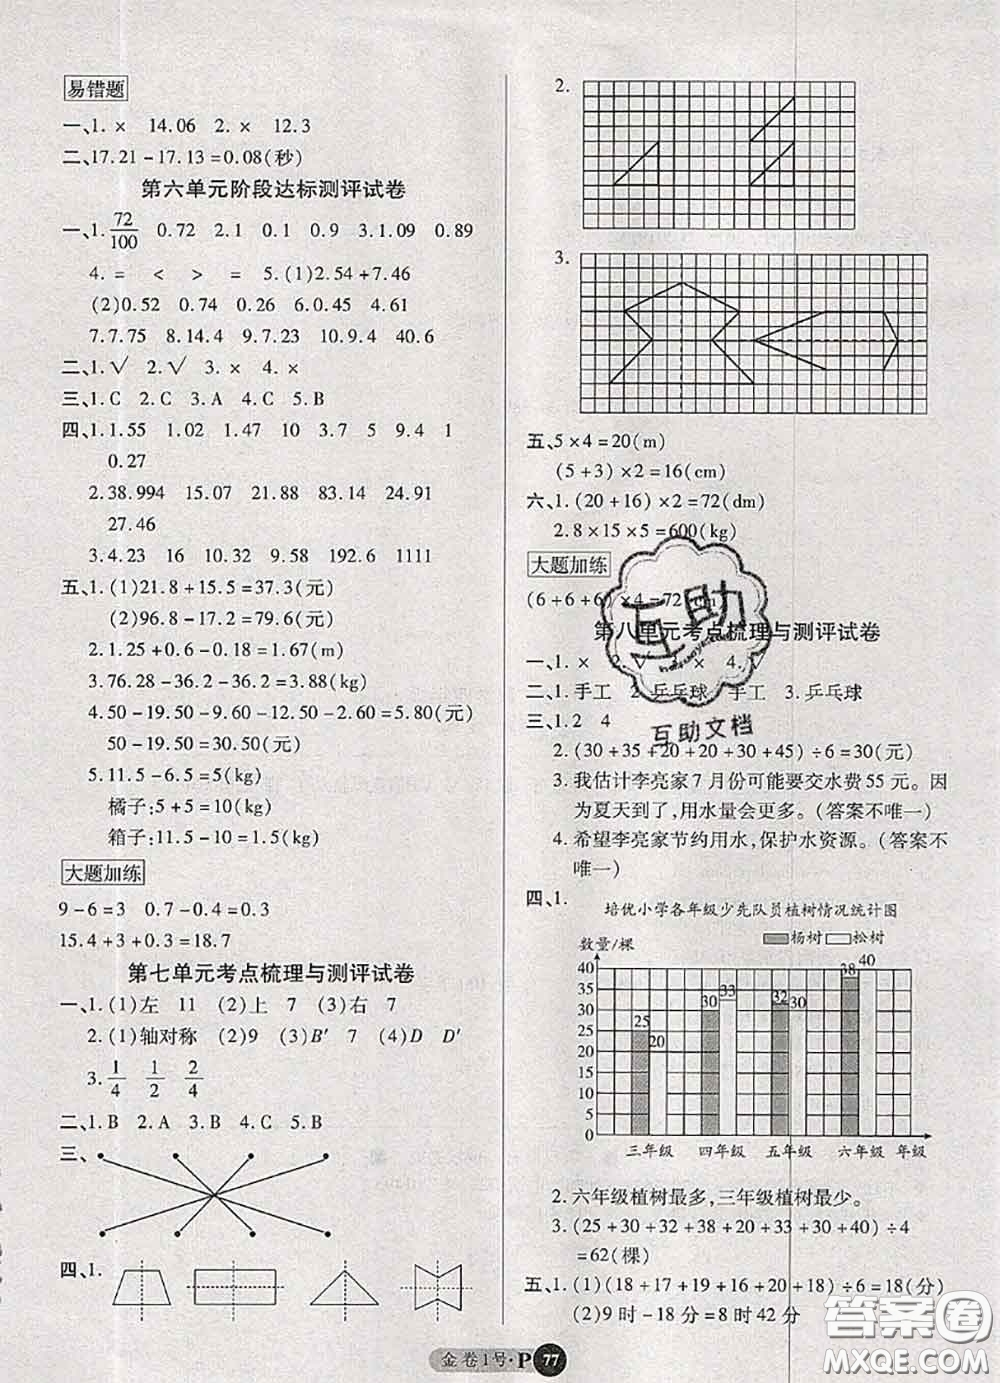 易错题
一、1. × 14.06 2. × 12.3
二、17.21-17.13=0.08(秒)
第六单元阶段达标测评试卷
一、1. 72/100 0.72 2.1 0.1 0.9 3.1.09 0.89
4. = < > = 5.(1)2.54+7.46
(2)0.52 0.74 0.26 6.0.45 4.61
7.7.75 8.14.4 9.7.23 10.9.4 40.6
二、1.√ 2.√ 3. × 4. ×
三、1.C 2.C 3.A 4.C 5.B
四、1.1.55 1.02 1.47 10 3.7 5 9.4 1
0.27
2.38.994 15.07 21.88 83.14 24.91
27.46
3.4.23 16 10.32 9.58 192.6 1111
五、1.(1)21.8+15.5=37.3(元)
(2)96.8-17.2=79.6(元)
2.1.25+0.6-0.18=1.67(m)
3.76.28-36.2-36.2=3.88(kg)
4.50-19.50-9.60-12.50-2.60=5.80(元)
50-19.50=30.50(元)
5.11.5-6.5=5(kg)
橘子:5+5=10(kg)
箱子:11.5-10=1.5(kg)
大题加练
9-6=3 0.7-0.4=0.3
15.4+3+0.3=18.7
第七单元考点梳理与测评试卷
一、1.(1)左 11 (2)上 7 (3)右 7
2.(1)轴对称 (2)9 (3)B′ 7 (4)D D′
3. 1/4 1/2 2/4
二、1.B 2.A 3.B 4.C 5.B
三、
四、1.
2.
3.
五、5×4=20(m)
(5+3)×2=16(cm)
六、1.(20+16)×2=72(dm)
2.8×15×5=600(kg)
大题加练
(6+6+6)×4=72(dm)
第八单元考点梳理与测评试卷
一、1. × 2. √ 3. × 4. √
二、1.手工 2.乒乓球 手工 3.乒乓球
三、1.2 4
2.(30+35+20+20+30+45)÷6=30(元)
3.我估计李亮家7月份可能要交水费55元。因
为夏天到了,用水量会更多。(答案不唯一)
4.希望李亮家节约用水,保护水资源。(答案不
唯一)
四、1.
培优小学各年级少先队员植树情况统计图
数量/棵 杨树 松树
40
35
30
25
20
15
10
5
0
25 20 30 33 32 30 38 40
三年级 四年级 五年级 六年级 年级
2.六年级植树最多,三年级植树最少。
3.(25+30+32+38+20+33+30+40)÷4
=62(棵)
五、1.(1)(18+17+19+16+20+18)÷6=18(分)
(2)9时-18分=8时42分
互助
互助文档
金卷1号·P 77
答案圈
MXQE.COM